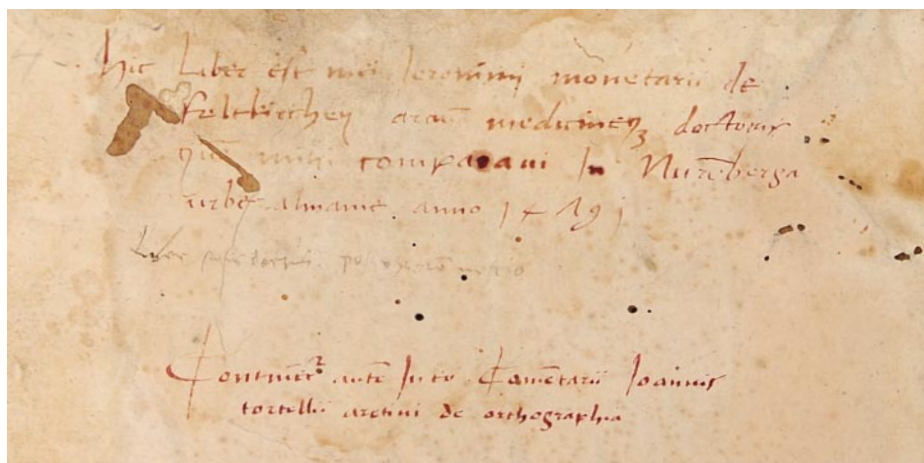 hic Liber est mei Ieronimi monetarii de
feltkirchen arciū medicineqȝ doctoris
quē mihi comparavi In Nurēberga
urbe almanie. anno 1491
Liber
Continent² autē In eo Comētarii Joannis
tortellii aretini de orthographia